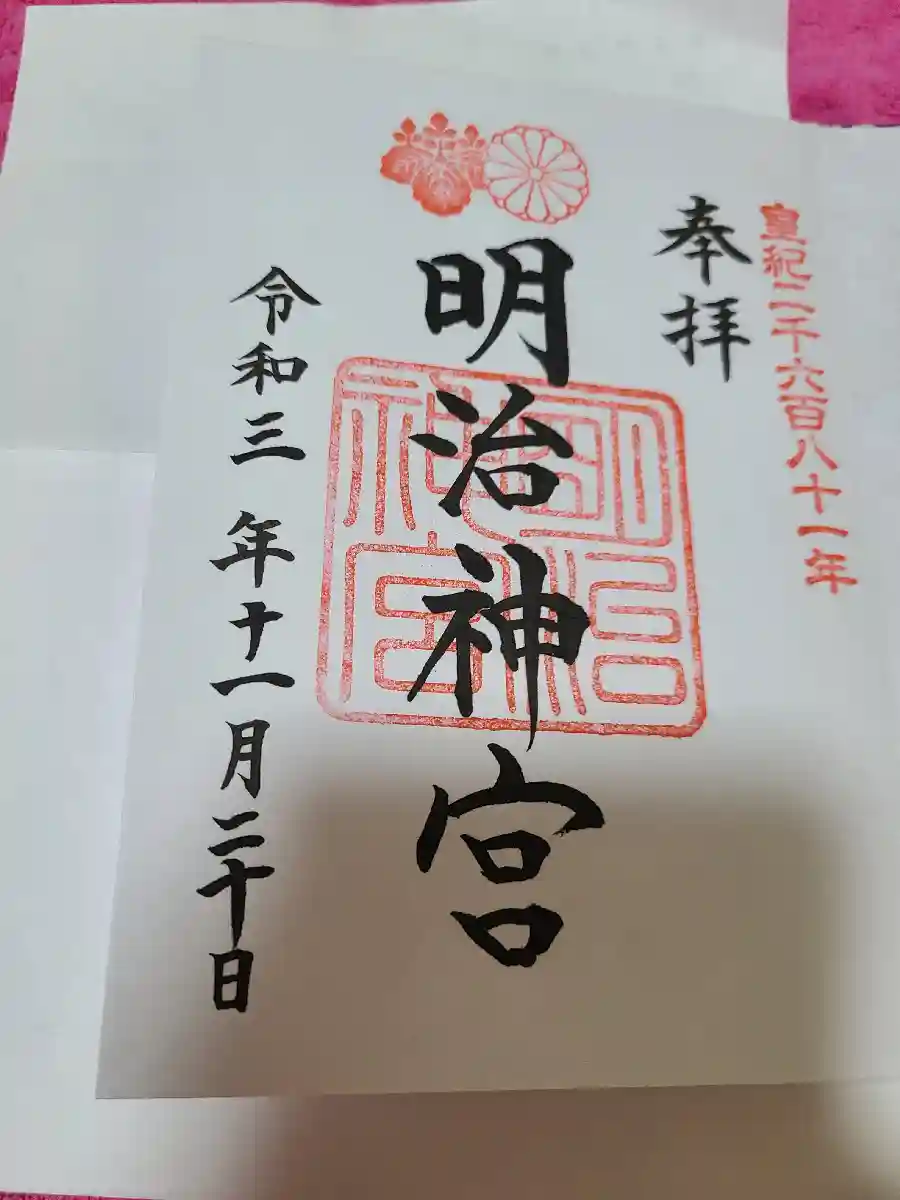 皇紀二千六百八十一年
奉拝
明治神宮
明治神宮
令和三年十一月二十日